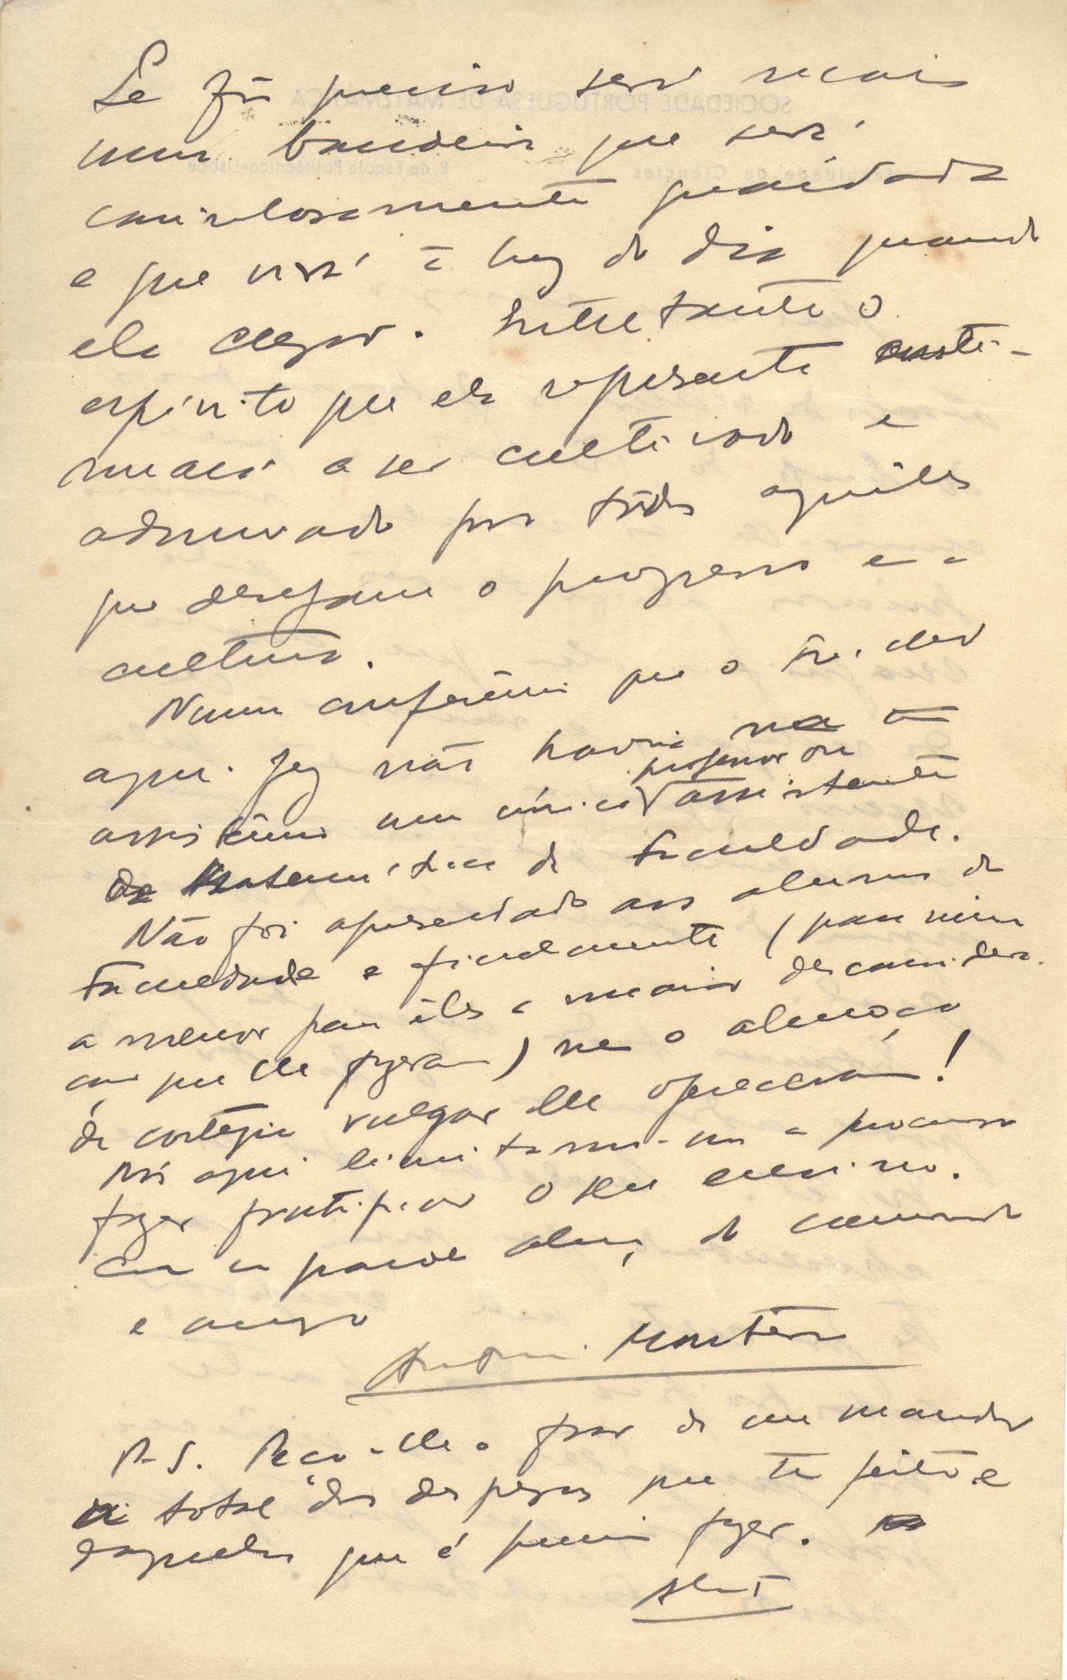 Se fôr preciso será mais
uma bandeira que será
cautelosamente guardada
e que virá à luz do dia quando
ele chegar. Entretanto o
espírito que ela representa conti-
nuará a ser cultivado e
admirado por todos aqueles
que desejam o progresso e a
cultura.
Numa conferência que o Sr. deu
aqui fez não havia na
assistência um único professor ou assistente
de Matemática da Faculdade.
Não foi apresentado aos alunos da
Faculdade e finalmente (para mim
a menor para êles a maior desconsidera-
ção que lhe fizeram) nem o almoço
de cortezia vulgar lhe ofereceram!
Nós aqui limitamo-nos a procurar
fazer frutificar o seu ensino.
Com um grande abraço do camarada
e amigo
António Monteiro
P.S. Peço-lhe o favor de me mandar
o total das despezas que tem feito e
daquelas que é preciso fazer.